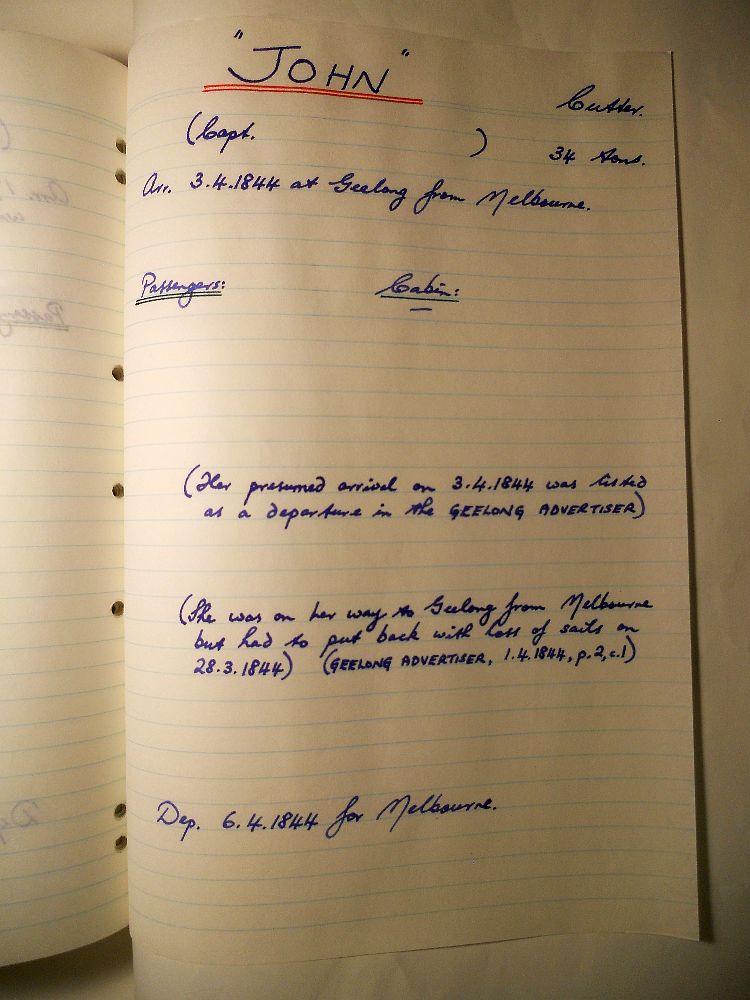 "JOHN"
Cutter.
(Capt. )
34 tons.
Arr. 3.4.1844 at Geelong from Melbourne.
Passengers: Cabin:
—
(Her presumed arrival on 3.4.1844 was listed
as a departure in the GEELONG ADVERTISER)
(She was on her way to Geelong from Melbourne
but had to put back with loss of sails on
28.3.1844) (GEELONG ADVERTISER, 1.4.1844, p.2, c.1)
Dep. 6.4.1844 for Melbourne.